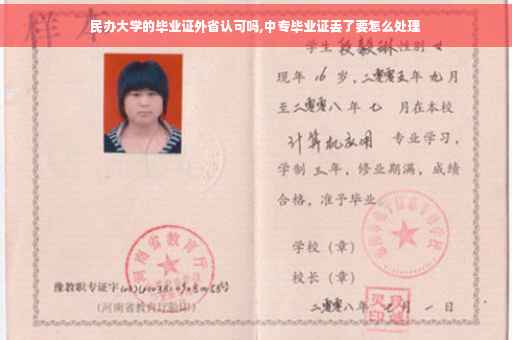 民办大学的毕业证外省认可吗,中专毕业证丢了要怎么处理
样本
学生段毅琳性别女
现年16岁,二零零五年九月
至二零零八年七月在本校
计算机应用专业学习,
学制三年,修业期满,成绩
合格,准予毕业
学校(章)
河南省教育厅
校长(章)
豫教职专证字
(河南省教育厅验印)
二零零八年七月一日